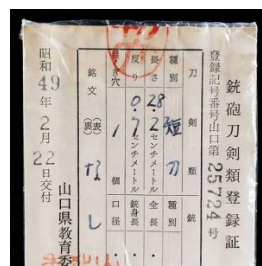 銃砲刀剣類登録証
登録記号番号山口第25724号
刀剣類
銃
種別 短刀
種別
長さ 28.7センチメートル
全長
反り 0.2センチメートル
銃身長
目くぎ穴 1個
口径
銘文
(表)
(裏)
なし
昭和49年2月22日交付
山口県教育委